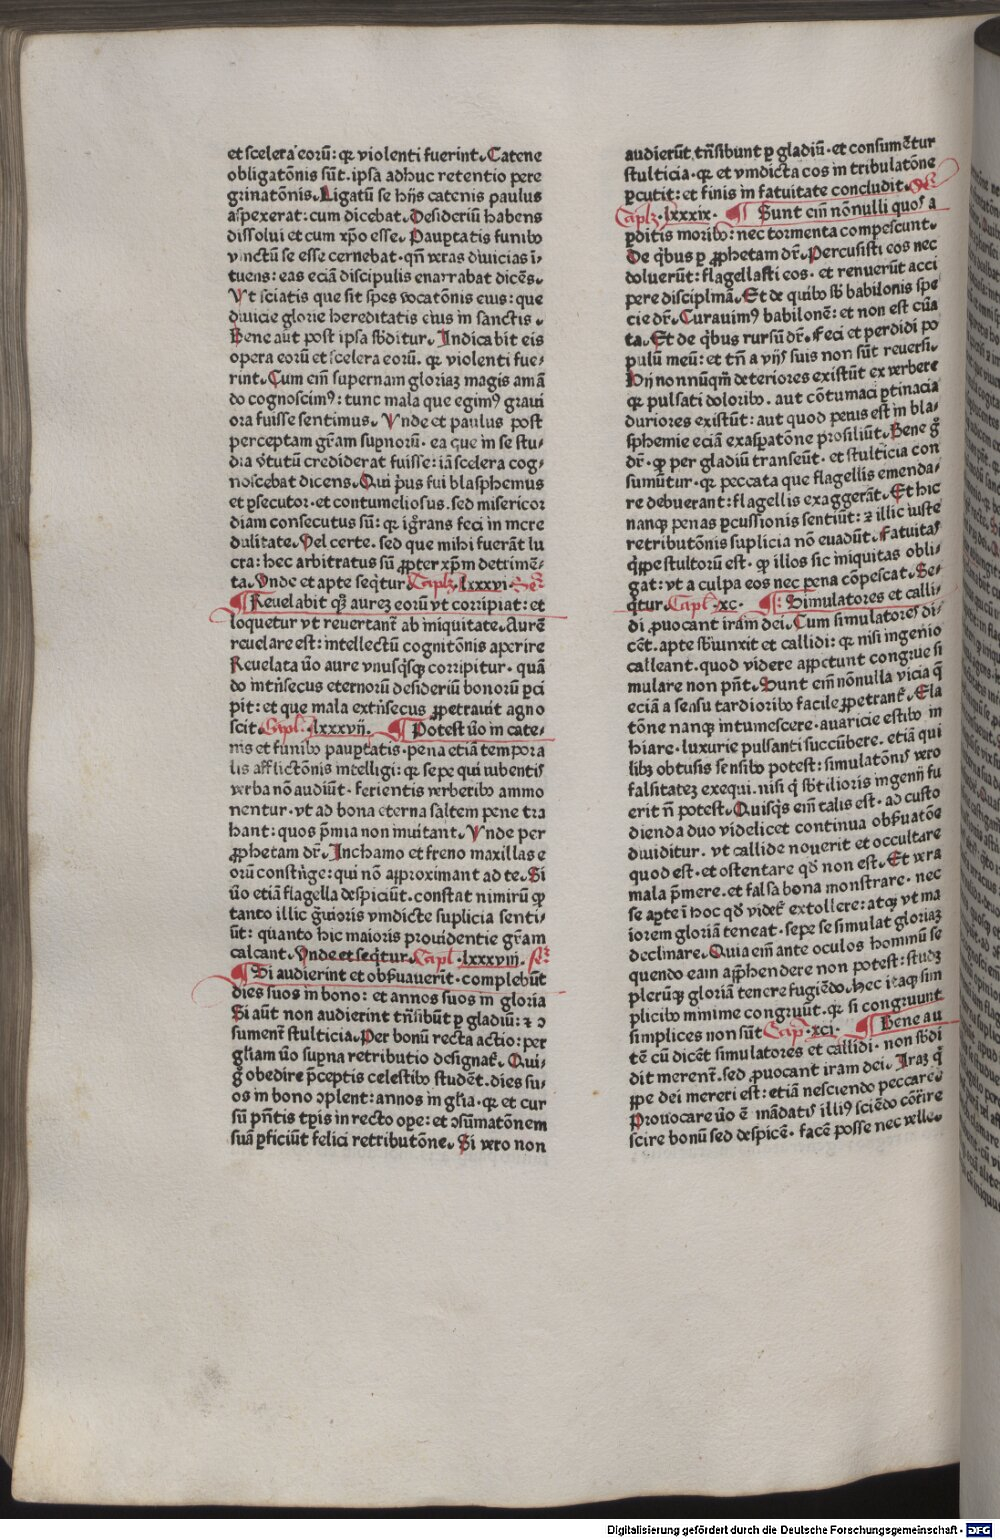 et scelera eorū: qꝛ violenti fuerint. Catene
obligatōnis sūt. ipsa adhuc retentio pere
grinatōnis. Ligatū se hijs catenis paulus
aspexerat: cum dicebat. Desideriū habens
dissolui et cum xp̄o esse. Paup̄tatis funibꝰ
vinctū se esse cernebat. qn̄ veras diuicias ī-
tuens: eas eciā discipulis enarrabat dicēs.
Vt sciatis que sit spes vocatōnis eius: que
diuicie glorie hereditatis eius in sanctis.
Bene aūt post ipsa sb̄ditur. Indicabit eis
opera eorū et scelera eorū. qꝛ violenti fue-
rint. Cum em̄ supernam gloriaz magis amā
do cognoscimꝰ: tunc mala que egimꝰ graui
ora fuisse sentimus. Vnde et paulus post
perceptam gr̄am supnorū. ea que in se stu-
dia v̄tutū crediderat fuisse: iā scelera cog-
noscebat dicens. Qui p̄us fui blasphemus
et p̱secutor. et contumeliosus. sed misericor
diam consecutus sū: qꝛ ig̊rans feci in incre
dulitate. Vel certe. sed que mihi fuerāt lu
cra: hec arbitratus sū ꝓpter xp̄m detrimē-
ta. Vnde et apte seq̄tur Caplꝫ. lxxxvi.
¶ Reuelabit qꝫ aurez eorū vt corripiat: et
loquetur vt reuertant᷑ ab iniquitate. Aurē
reuelare est: intellectū cognitōnis aperire
Reuelata v̄o aure vnusq̄sqꝫ corripitur. quā
do int̄nsecus eternorū desideriū bonorū p̱ci
pit: et que mala ext̄nsecus ꝓpetrauit agno
scit Caplꝫ. lxxxvij. ¶ Potest v̄o in cate-
nis et funibꝰ paup̱tatis. pena etiā tempora
lis afflictōnis intelligi: qꝛ sepe qui iubentis
verba nō audiūt. ferientis verberibꝰ ammo
nentur. vt ad bona eterna saltem pene tra
hant: quos p̄mia non inuitant. Vnde per
ꝓphetam dr̄. Inchamo et freno maxillas e
orū constr̄nge: qui nō approximant ad te. Si
v̄o etiā flagella despiciūt. constat nimirū qꝫ
tanto illic g̊uioris vindicte suplicia senti-
ūt: quanto hic maioris prouidentie gr̄am
calcant. Vnde et seq̄tur. Caplꝫ. lxxxviij.
¶ Si audierint et obẜuauerīt. complebūt
dies suos in bono: et annos suos in gloria
Si aūt non audierint tn̄sibūt p̱ gladiū: ⁊ ꝯ
sument᷑ stulticia. Per bonū recta actio: per
gl̄iam v̄o sup̱na retributio designat᷑. Qui-
g̊ obedire p̄ceptis celestibꝰ studēt. dies su-
os in bono ꝯplent: annos in gl̄ia. qꝛ et cur
sū p̄ntis tp̄is in recto ope: et ꝯsūmatōnem
suā p̱ficiūt felici retributōne. Si vero non
audierūt. tn̄sibunt p̱ gladiū. et consumēt᷑ur
stulticia. qꝛ et vindicta cos in tribulatōne
p̱cutit: et finis in fatuitate concludit.
Caplꝫ. lxxxix. ¶ Sunt em̄ nōnulli quos a
p̱ditis moribꝰ: nec tormenta compescunt.
De q̄bus p̱ ꝓphetam dr̄. Percusisti eos nec
doluerūt: flagellasti eos. et renuerūt acci
pere disciplinā. Et de quibꝰ sb̄ babilonis spe
cie dr̄. Curauimꝰ babilonē: et non est cūa
ta. Et de q̄bus rursū dr̄. Feci et perdidi po
pulū meū: et tn̄ a vijs suis non sūt reuersi.
Hij nonnūqm̄ deteriores existūt ex verbere
qꝛ pulsati doloribꝰ. aut cōtumaci p̱tinacia
duriores existūt: aut quod peius est in bla-
sphemie eciā exasp̱atōne prosiliūt. Bene g̊
dr̄. qꝫ per gladiū transeūt. et stulticia con
sumūtur. qꝛ peccata que flagellis emenda-
re debuerant: flagellis exaggerāt. Et hic
nanqꝫ penas p̱cussionis sentiūt: ⁊ illic iuste
retributōnis suplicia nō euadūt. Fatuitas
q̄ppe stultorū est. qꝫ illos sic iniquitas obli-
gat: vt a culpa eos nec pena cōpescat. Se-
q̄tur. Caplꝫ. xc. ¶ Simulatores et calli-
di ꝓuocant iram dei. Cum simulatores di-
cēt. apte sb̄iunxit et callidi: qꝛ nisi ingenio
calleant. quod videre app̱tunt congrue si
mulare non pn̄t. Sunt em̄ nōnulla vicia q̄
eciā a sensu tardioribꝰ facile ꝓpetrant᷑. Ela
tōne nanqꝫ intumescere. auaricie estibꝰ in
hiare. luxurie pulsanti succūbere. etiā qui
libꝫ obtusis sensibꝰ potest: simulatōnis vero
falsitatez exequi. nisi q̄ sb̄tilioris ingenij fu
erit n̄ potest. Quisq̄s em̄ talis est. ad custo
dienda duo videlicet continua obẜuatōe
diuiditur. vt callide nouerit et occultare
quod est. et ostentare qd̄ non est. Et vera
mala p̄mere. et falsa bona monstrare. nec
se apte ī hoc qd̄ videt᷑ extollere: atqꝫ vt ma
iorem gloriā teneat. sepe se simulat gloriaz
declinare. Quia em̄ ante oculos hominū se
quendo eam app̱hendere non potest: studꝫ
plerūqꝫ gloriā tenere fugiēdo. Hec itaqꝫ sim
plicibꝰ minime congruūt. qꝛ si congruunt
simplices non sūt Cap̄. xci. ¶ Bene au
tē cū dicēt simulatores et callidi. non sb̄di
dit merent᷑. sed ꝓuocant iram dei. Iraz q̄
ppe dei mereri est: etiā nesciendo peccare
Prouocare v̄o ē mādatis illiꝰ sciēdo cōt᷑ire
scire bonū sed despicē. facē posse nec velle.
Digitalisierung gefördert durch die Deutsche Forschungsgemeinschaft - DFG